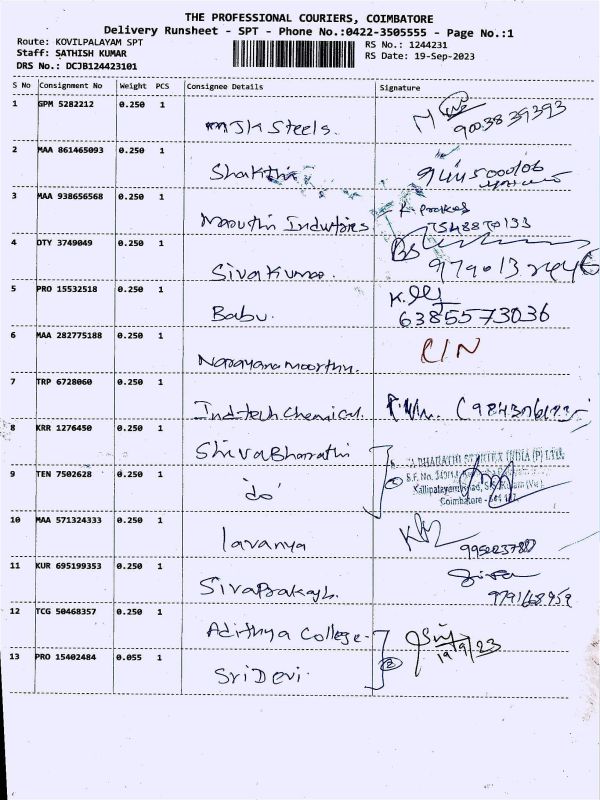 THE PROFESSIONAL COURIERS, COIMBATORE
Delivery Runsheet - SPT - Phone No.:0422-3505555 - Page No.:1
Route: KOVILPALAYAM SPT
RS No.: 1244231
Staff: SATHISH KUMAR
RS Date: 19-Sep-2023
DRS No.: DCJB124423101
S No Consignment No Weight PCS Consignee Details Signature
1 GPM 5282212 0.250 1
Steels.
2 MAA 861465093 0.250 1
Shakthi
3 MAA 938656568 0.250 1
Maruthi Industries
4 DTY 3749049 0.250 1
Sivakumar.
5 PRO 15532518 0.250 1
Babu. 6385573036
6 MAA 282775188 0.250 1
Narayana moorthy. C/N
7 TRP 6728060 0.250 1
Ind-tech Chemical
8 KRR 1276450 0.250 1
ShivaBharathi
BHARATHI INDIA (P) LTD.
S.F. No.
9 TEN 7502628 0.250 1
do
Kallipalayam Road,
Coimbatore -
10 MAA 571324333 0.250 1
lavanya
11 KUR 695199353 0.250 1
SivaPrakash.
12 TCG 50468357 0.250 1
Adithya College - 19/9/23
13 PRO 15402484 0.055 1
SriDevi.